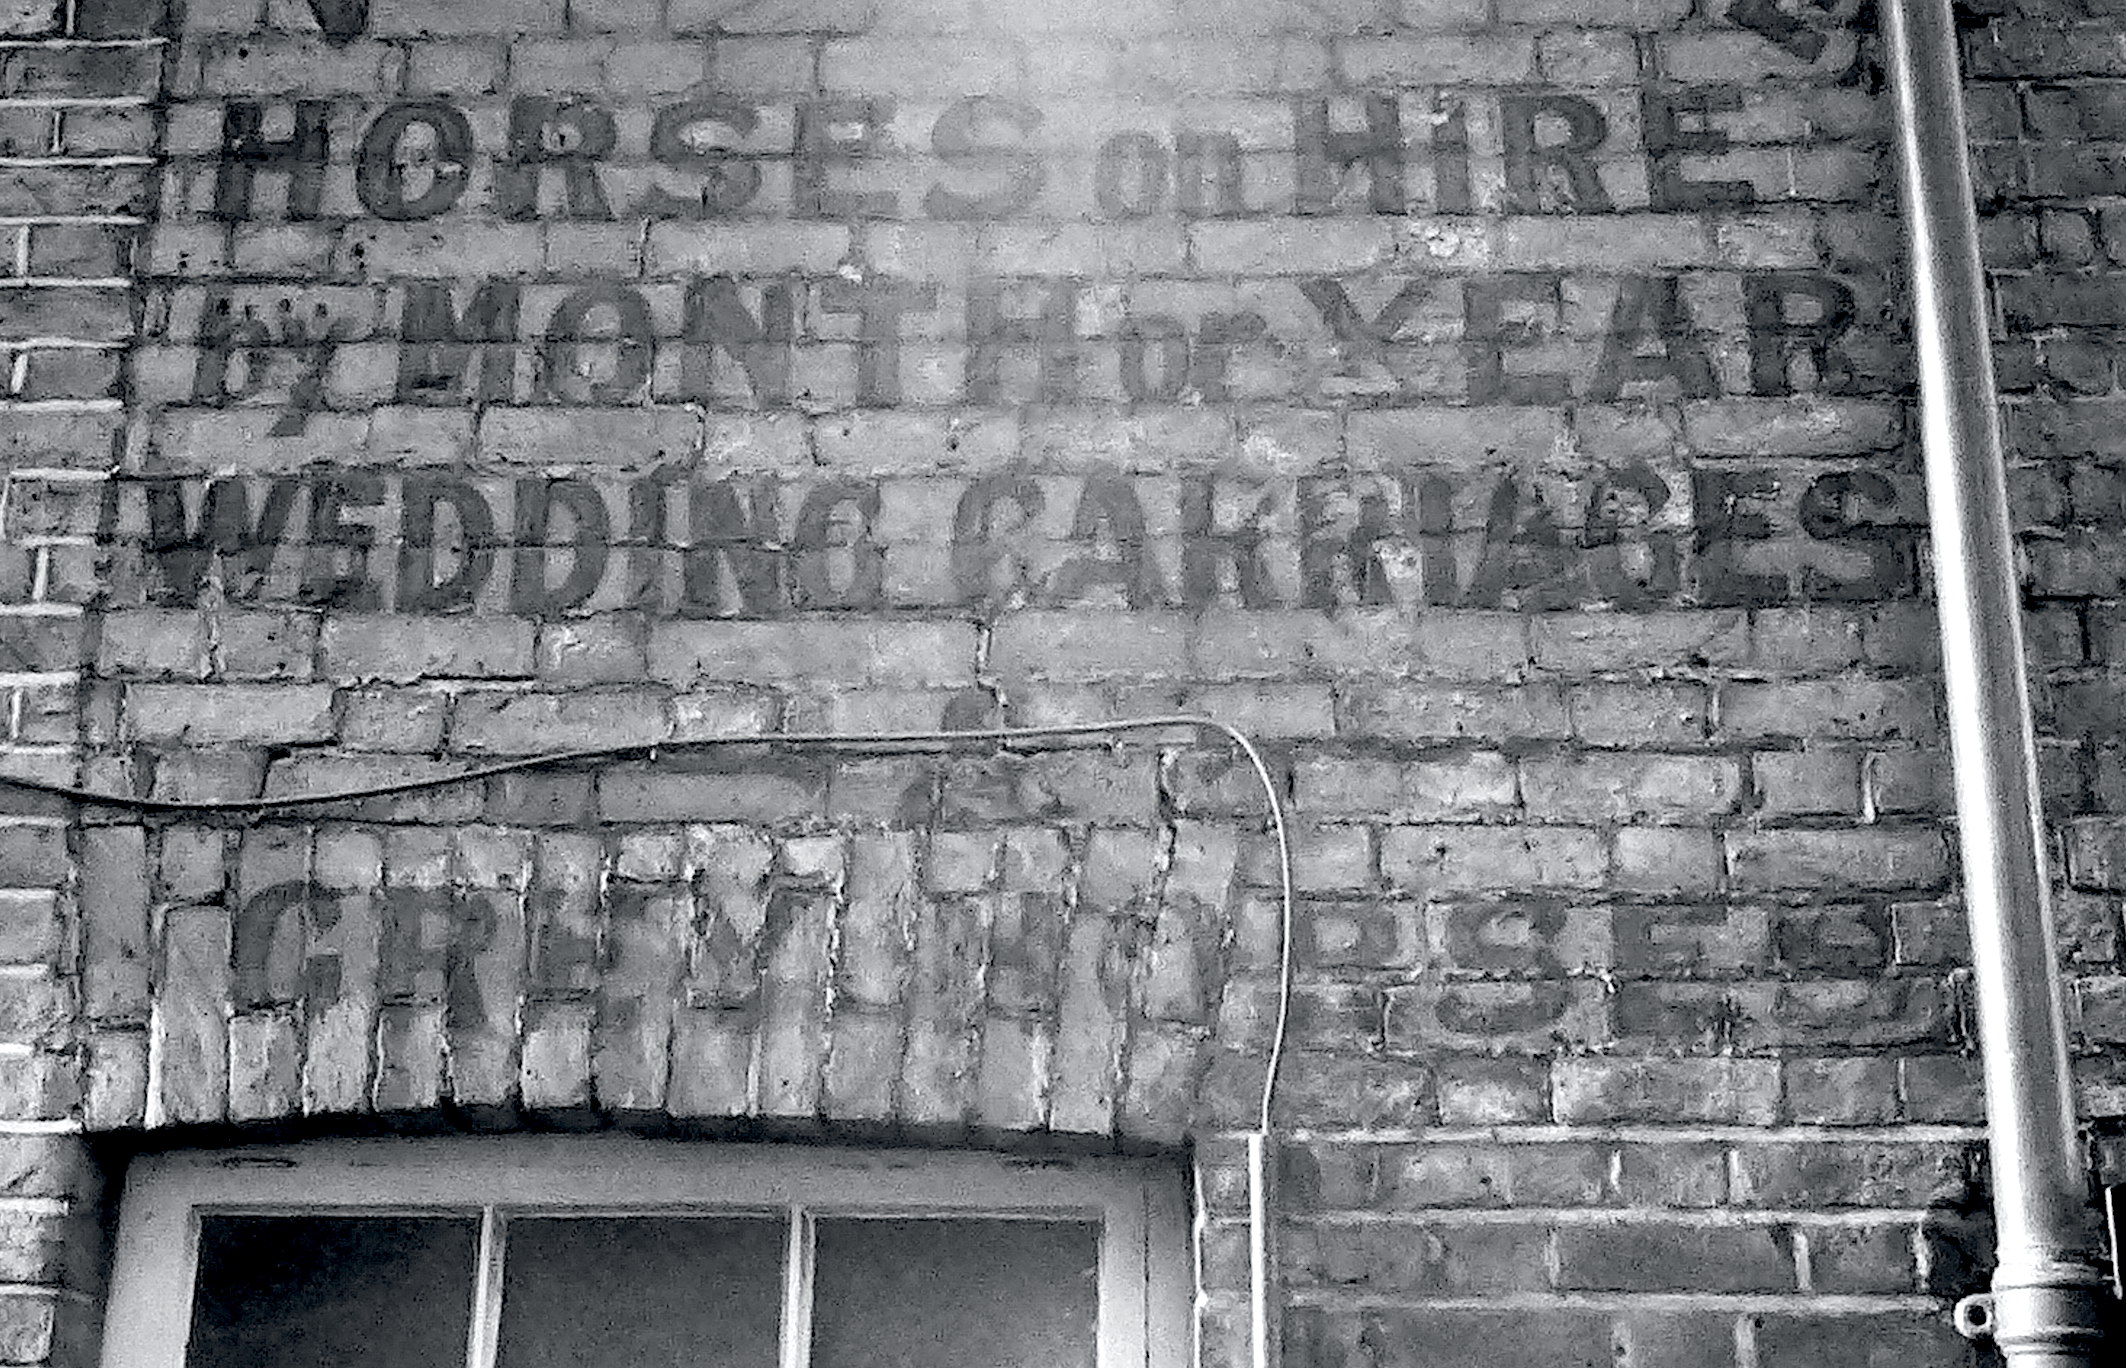 HORSES on HIRE
by MONTH or YEAR
WEDDING CARRIAGES
&
GREY HORSES